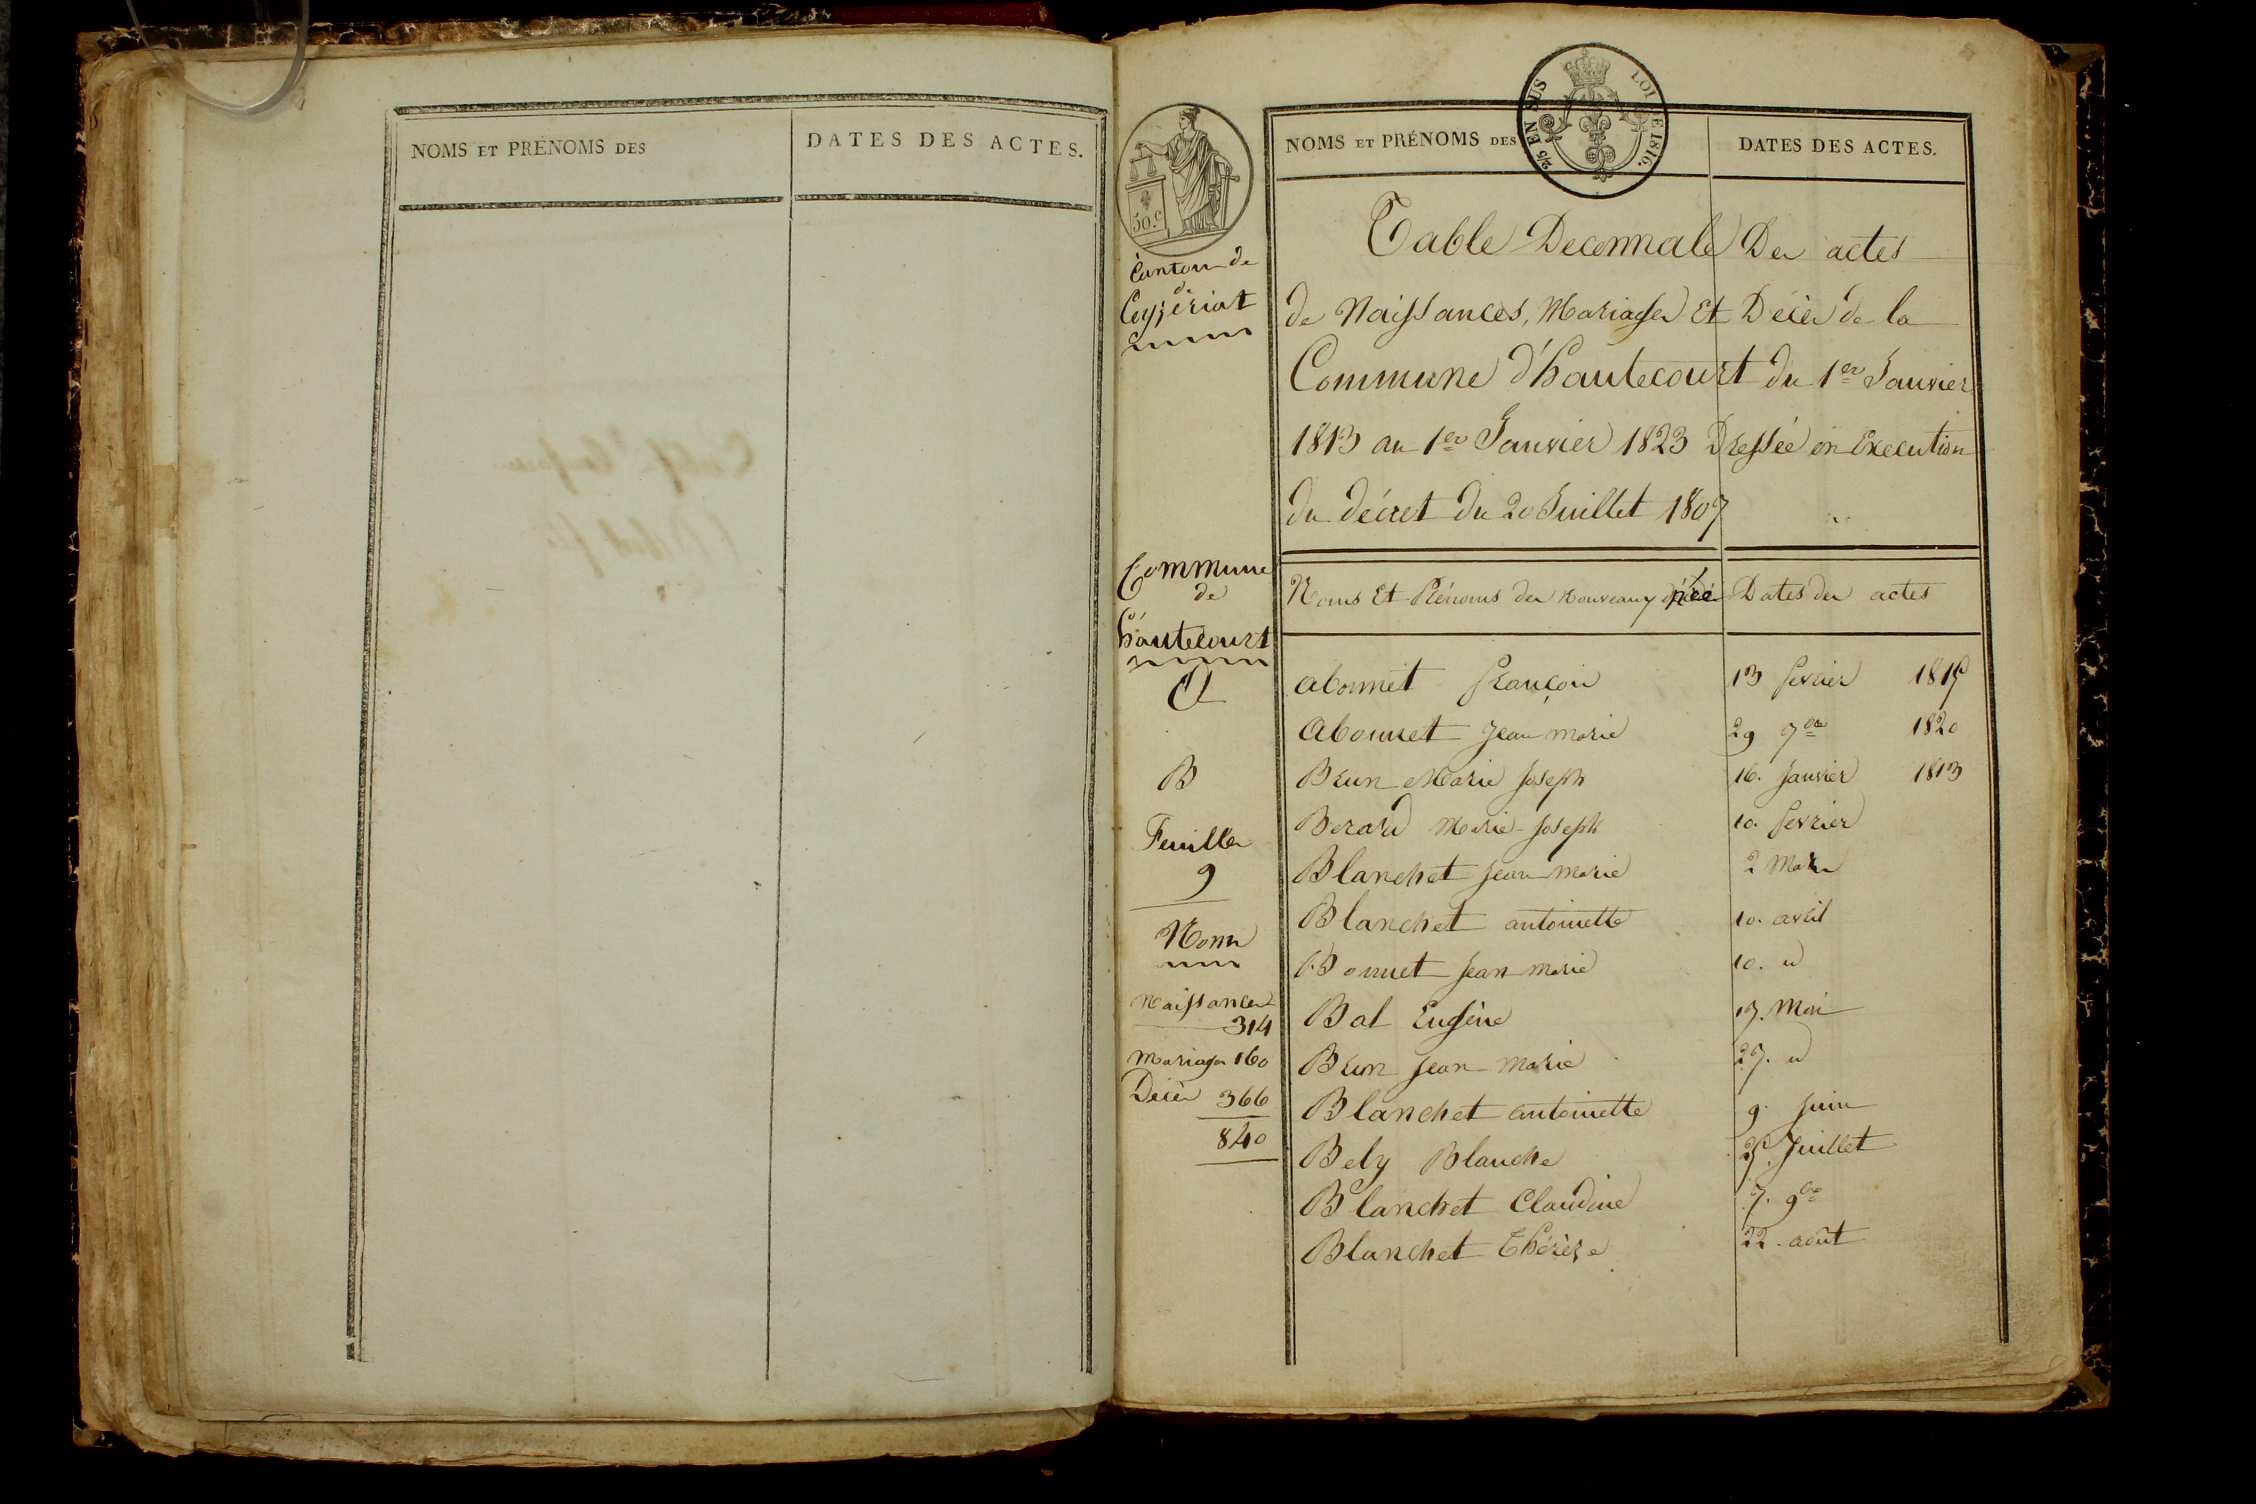 NOMS ET PRÉNOMS DES
DATES DES ACTES.
NOMS ET PRÉNOMS DES
DATES DES ACTES.
2/5 EN SUS
LOI DE 1816.
50.c
Canton de
de
Ceyzeriat
Table Decennale Des actes
de Naissances, Mariages Et Décès de la
Commune d'hautecourt du 1er Janvier
1813 au 1er Janvier 1823 Dressée en Execution
du décret du 20 Juillet 1807
Commune
de
hautecourt
Noms Et Prénoms des nouveaux nés
Dates des actes
A
abonnet françois 13 fevrier 1815
abonnet Jean marie 29 7bre 1820
B
Brun Marie Joseph 16. Janvier 1813
Berard Marie-Joseph 10. fevrier
Feuilles
9
Blanchet Jean marie 2 Mars
Blanchet antoinette 10. avril
Noms
Bonnet Jean marie 10. id
Naissances
314
Bal Eugène 17. Mai
Mariages 160
Brun Jean Marie 27. id
Décès 366
Blanchet antoinette 9. Juin
840
Bely Blanche 25. Juillet
Blanchet Claudine 7. 9bre
Blanchet Thérèse 22. août